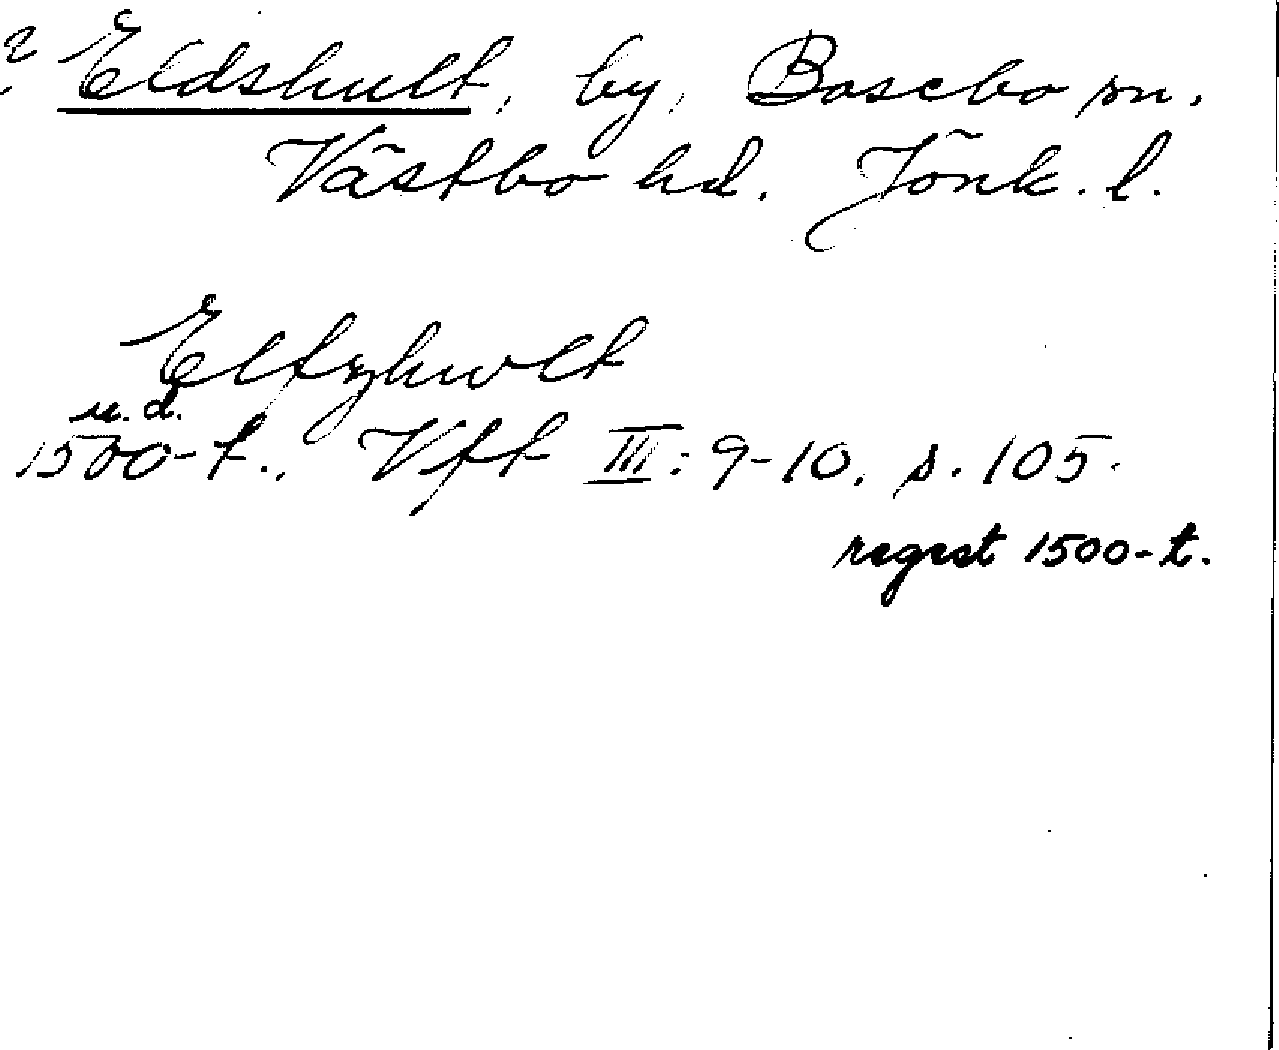 ? Eldshult, by, Bosebo sn.
Västbo hd. Jönk. l.
Elfzhwlt
u.d.
1500-t. Vft III: 9-10. s. 105.
regest 1500-t.